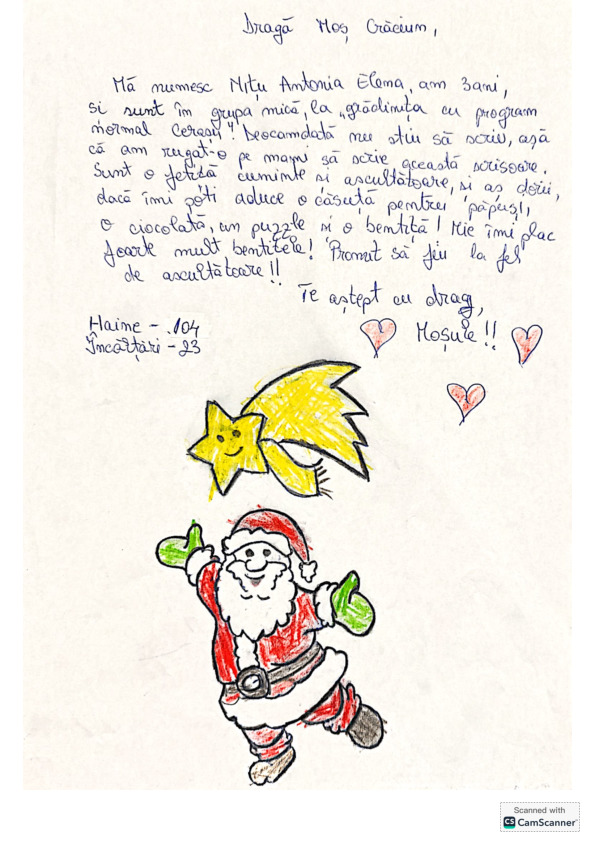 Dragă Moș Crăciun,
Mă numesc Nițu Antonia Elena, am 3ani,
și sunt în grupa mică, la „grădinița cu program
normal Cerașu"! Deocamdată nu știu să scriu, așa
că am rugat-o pe mami să scrie această scrisoare.
Sunt o fetiță cuminte și ascultătoare, și aș dori,
dacă îmi poți aduce o căsuță pentru păpuși,
o ciocolată, un puzzle și o bentiță! Mie îmi plac
foarte mult bentițele! Promit să fiu la fel
de ascultătoare!!
Te aștept cu drag,
Moșule!!
Haine - 104
Încălțări - 23
Scanned with
CS CamScanner